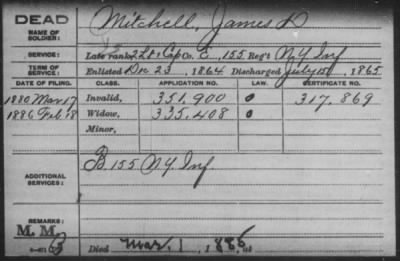 DEAD
NAME OF SOLDIER: Mitchell, James D
SERVICE: Late rank 2 Lt, Cap Co. E, 155 Reg't N Y Inf
TERM OF SERVICE: Enlisted Dec 23, 1864 Discharged July 15, 1865
DATE OF FILING. CLASS. APPLICATION NO. LAW. CERTIFICATE NO.
1880 Mar 17 Invalid, 351,900 317,869
1886 Feb 18 Widow, 335,408
Minor,
ADDITIONAL SERVICES: B. 155 N Y Inf.
REMARKS:
M. M.
Died Mar, 1, 1885, at